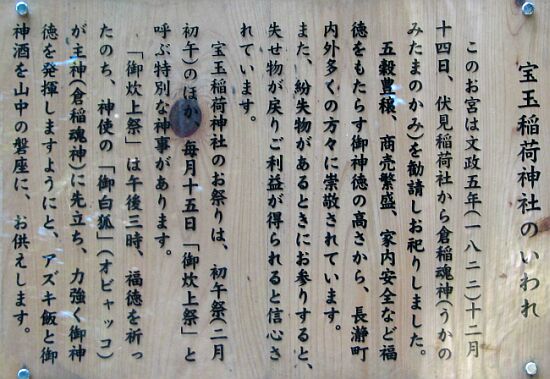 宝玉稲荷神社のいわれ
このお宮は文政五年(一八二二)十二月
十四日、伏見稲荷社から倉稲魂神(うかの
みたまのかみ)を勧請しお祀りしました。
五穀豊穣、商売繁盛、家内安全など福
徳をもたらす御神徳の高さから、長瀞町
内外多くの方々に崇敬されています。
また、紛失物があるときにお参りすると、
失せ物が戻りご利益が得られると信心さ
れています。
宝玉稲荷神社のお祭りは、初午祭(二月
初午)のほか、毎月十五日「御炊上祭」と
呼ぶ特別な神事があります。
「御炊上祭」は午後三時、福徳を祈っ
たのち、神使の「御白狐」(オビャッコ)
が主神(倉稲魂神)に先立ち、力強く御神
徳を発揮しますようにと、アズキ飯と御
神酒を山中の磐座に、お供えします。